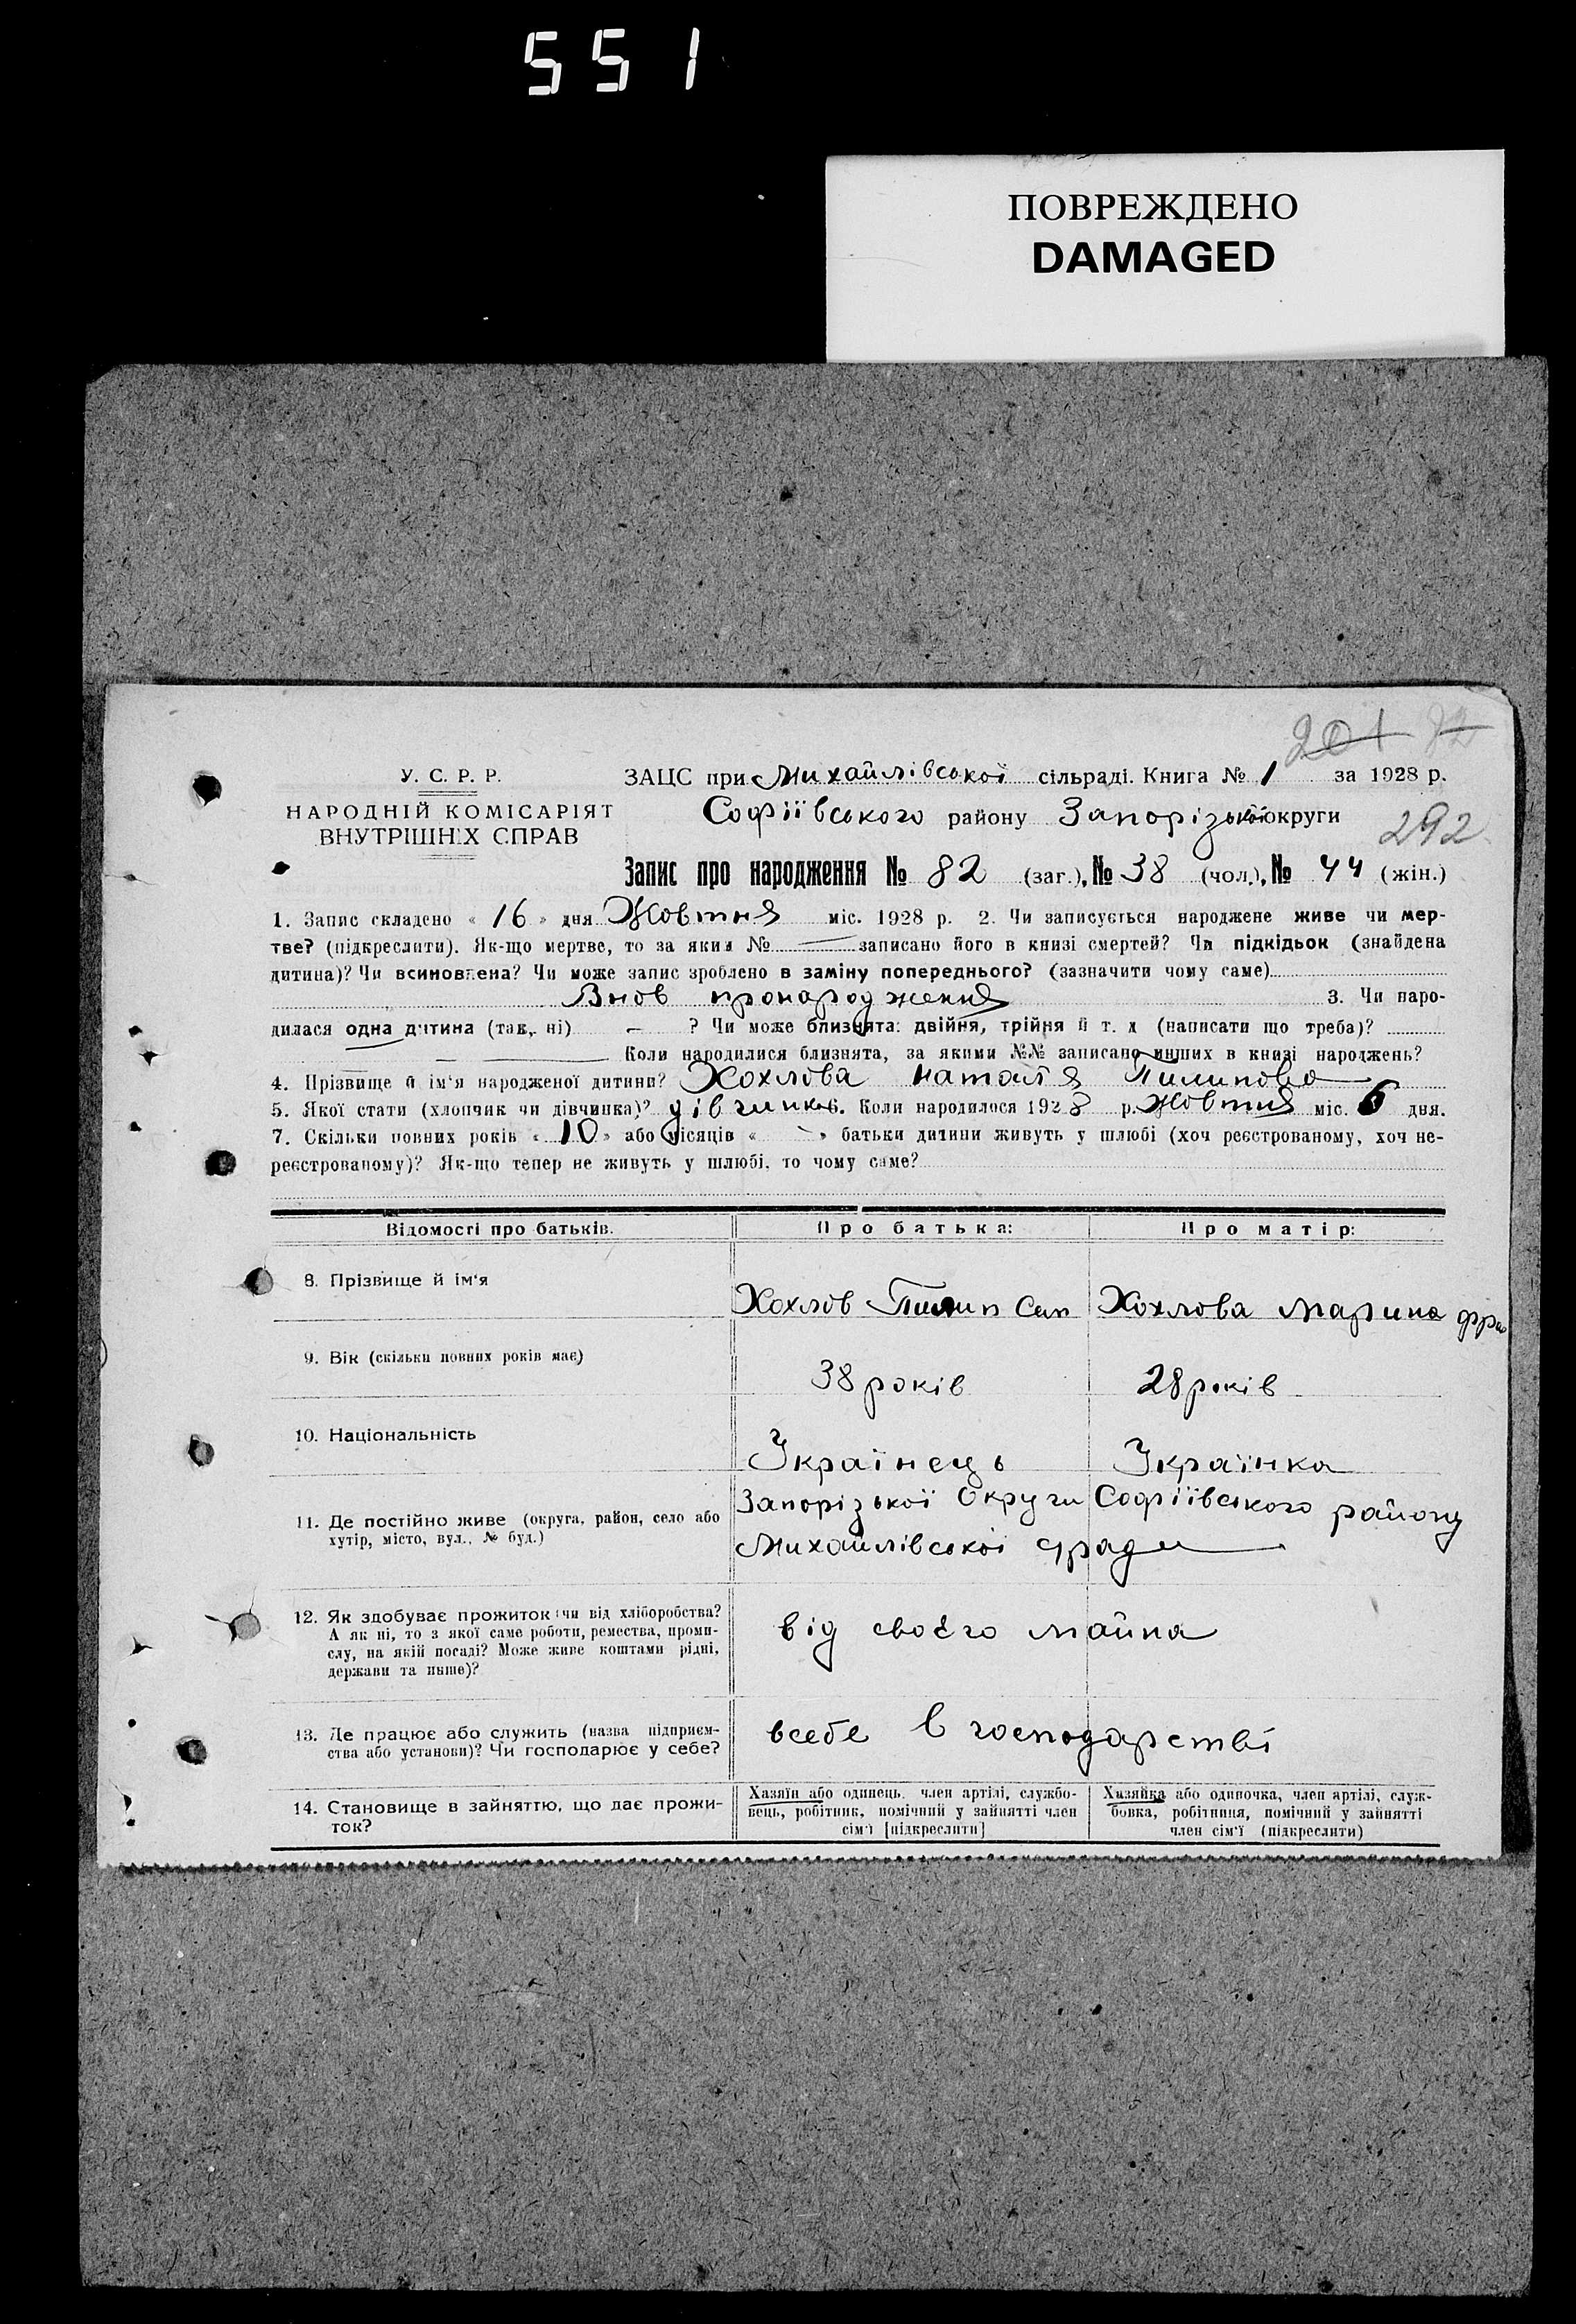 551
ПОВРЕЖДЕНО
DAMAGED
201 82
У. С. Р. Р.
НАРОДНІЙ КОМІСАРІЯТ
ВНУТРІШНІХ СПРАВ
ЗАЦС при Михайлівської сільраді. Книга № 1 за 1928 р.
Софіївського району Запорізької округи
292
Запис про народження № 82 (заг.), № 38 (чол.), № 44 (жін.)
1. Запис складено « 16 » дня Жовтня міс. 1928 р. 2. Чи записується народжене живе чи мер-
тве? (підкреслити). Як-що мертве, то за яким № — записано його в книзі смертей? Чи підкідьок (знайдена
дитина)? Чи всиновлена? Чи може запис зроблено в заміну попереднього? (зазначити чому саме)
Внов пронародження 3. Чи наро-
дилася одна дитина (так, ні) – ? Чи може близнята: двійня, трійня й т. д (написати що треба)?
— Коли народилися близнята, за якими №№ записано инших в книзі народжень?
4. Прізвище й ім'я народженої дитини? Хохлова Наталія Пилипова
5. Якої стати (хлопчик чи дівчинка)? дівчинка 6. Коли народилося 1928 р. Жовтня міс. 6 дня.
7. Скільки повних років « 10 » або місяців « - » батьки дитини живуть у шлюбі (хоч реєстрованому, хоч не-
реєстрованому)? Як-що тепер не живуть у шлюбі, то чому саме?
Відомості про батьків. Про батька: Про матір:
8. Прізвище й ім'я
Хохлов Пилип Сем Хохлова Марина
9. Вік (скільки повних років має)
38 років 28 років
10. Національність
Українець Українка
Запорізької Округи Софіївського району
11. Де постійно живе (округа, район, село або
хутір, місто, вул., № буд.)
Михайлівської с/ради
12. Як здобуває прожиток (чи від хліборобства?
А як ні, то з якої саме роботи, ремества, проми-
слу, на якій посаді? Може живе коштами рідні,
держави та инше)?
від своєго майна
13. Де працює або служить (назва підприєм-
ства або установи)? Чи господарює у себе?
всебе в господарстві
14. Становище в зайняттю, що дає прожи-
ток?
Хазяїн або одинець, член артілі, службо-
вець, робітник, помічний у зайнятті член
сім'ї [підкреслити]
Хазяйка або одиночка, член артілі, служ-
бовка, робітниця, помічний у зайнятті
член сім'ї (підкреслити)